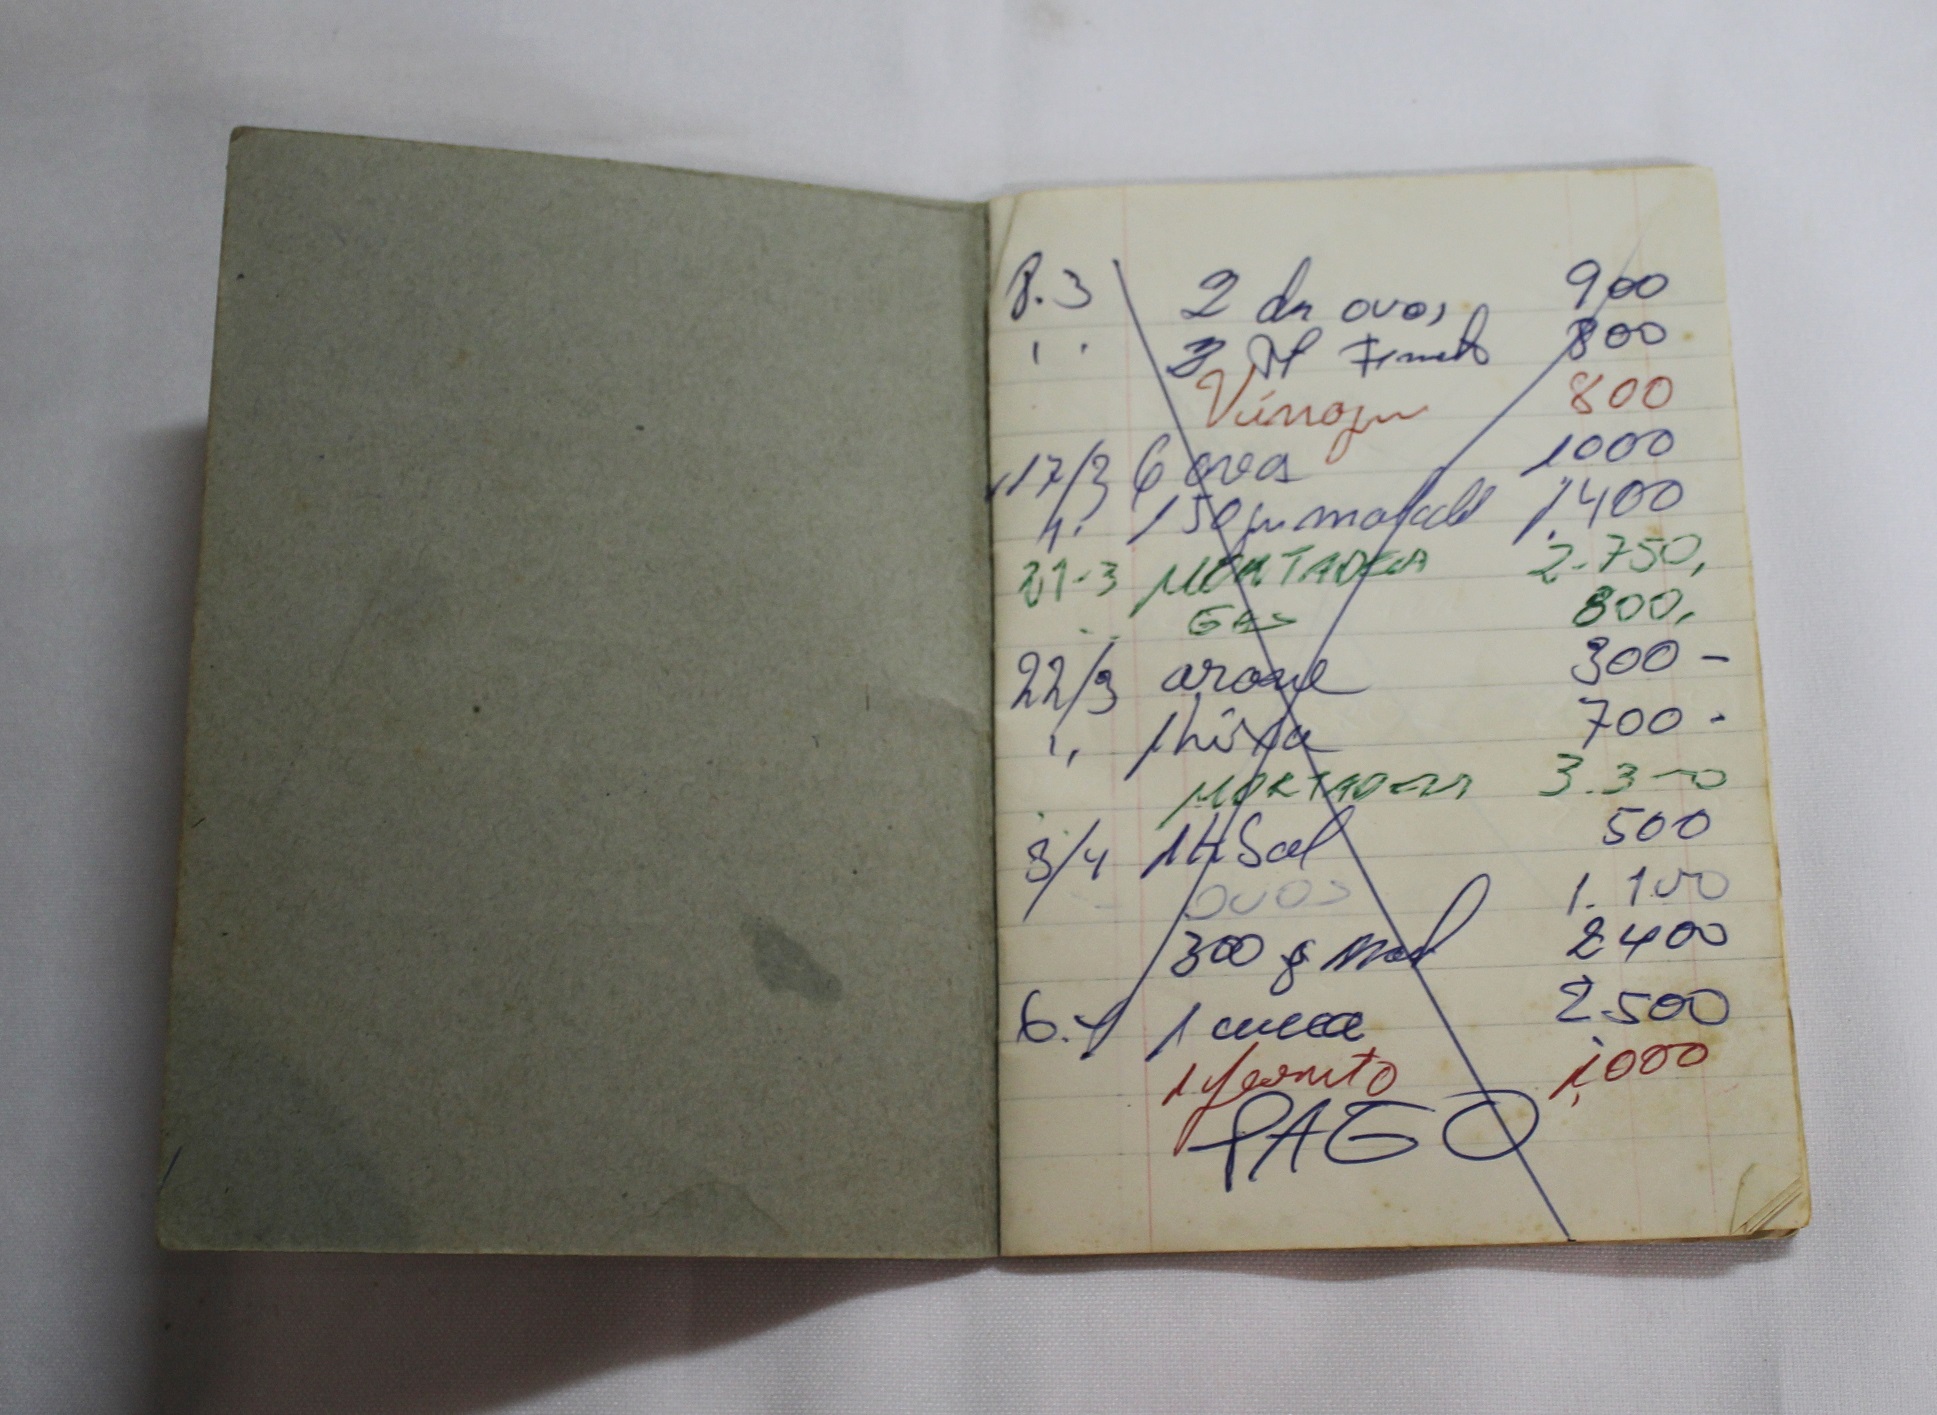 8.3 2 dz ovos 900
" 3 800
Vinagre 800
17/3 6 ovos 1000
" 150 gr 1400
21-3 MORTADELA 2.750,
" GAS 800,
22/3 300 -
" 700 -
" MORTADELA 3.300
3/4 1 K Sal 500
" OVOS 1.100
300 g 2400
6.4 1 2.500
1 1,000
PAGO